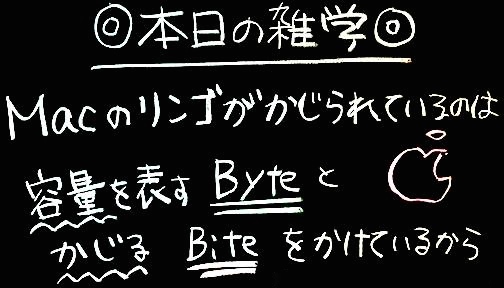 ◎本日の雑学◎
Macのリンゴがかじられているのは
容量を表す Byte と
かじる Bite をかけているから